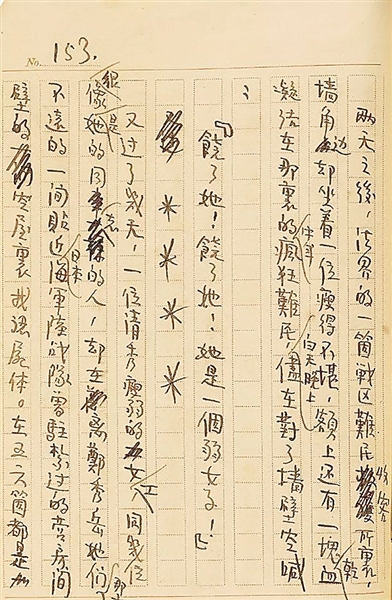 No. 153.
两天之後,法界的一箇战区難民收容所裏,
墙角边却坐着一位瘦得不堪,額上还有一塊乾血
凝结在那裏的中年疯狂難民,白天晚上儘在对了墙壁空喊
:
『饒了她!饒了她!她是一個弱女子!』
* * * *
又过了幾天,一位清秀瘦弱的女工,同幾位
很是像她的同志的人,却在離鄭秀岳她們那
不遠的一間貼近日本海軍陸战隊曾駐紮过的營房間
壁的空屋裏找認屍体。在五六箇都是